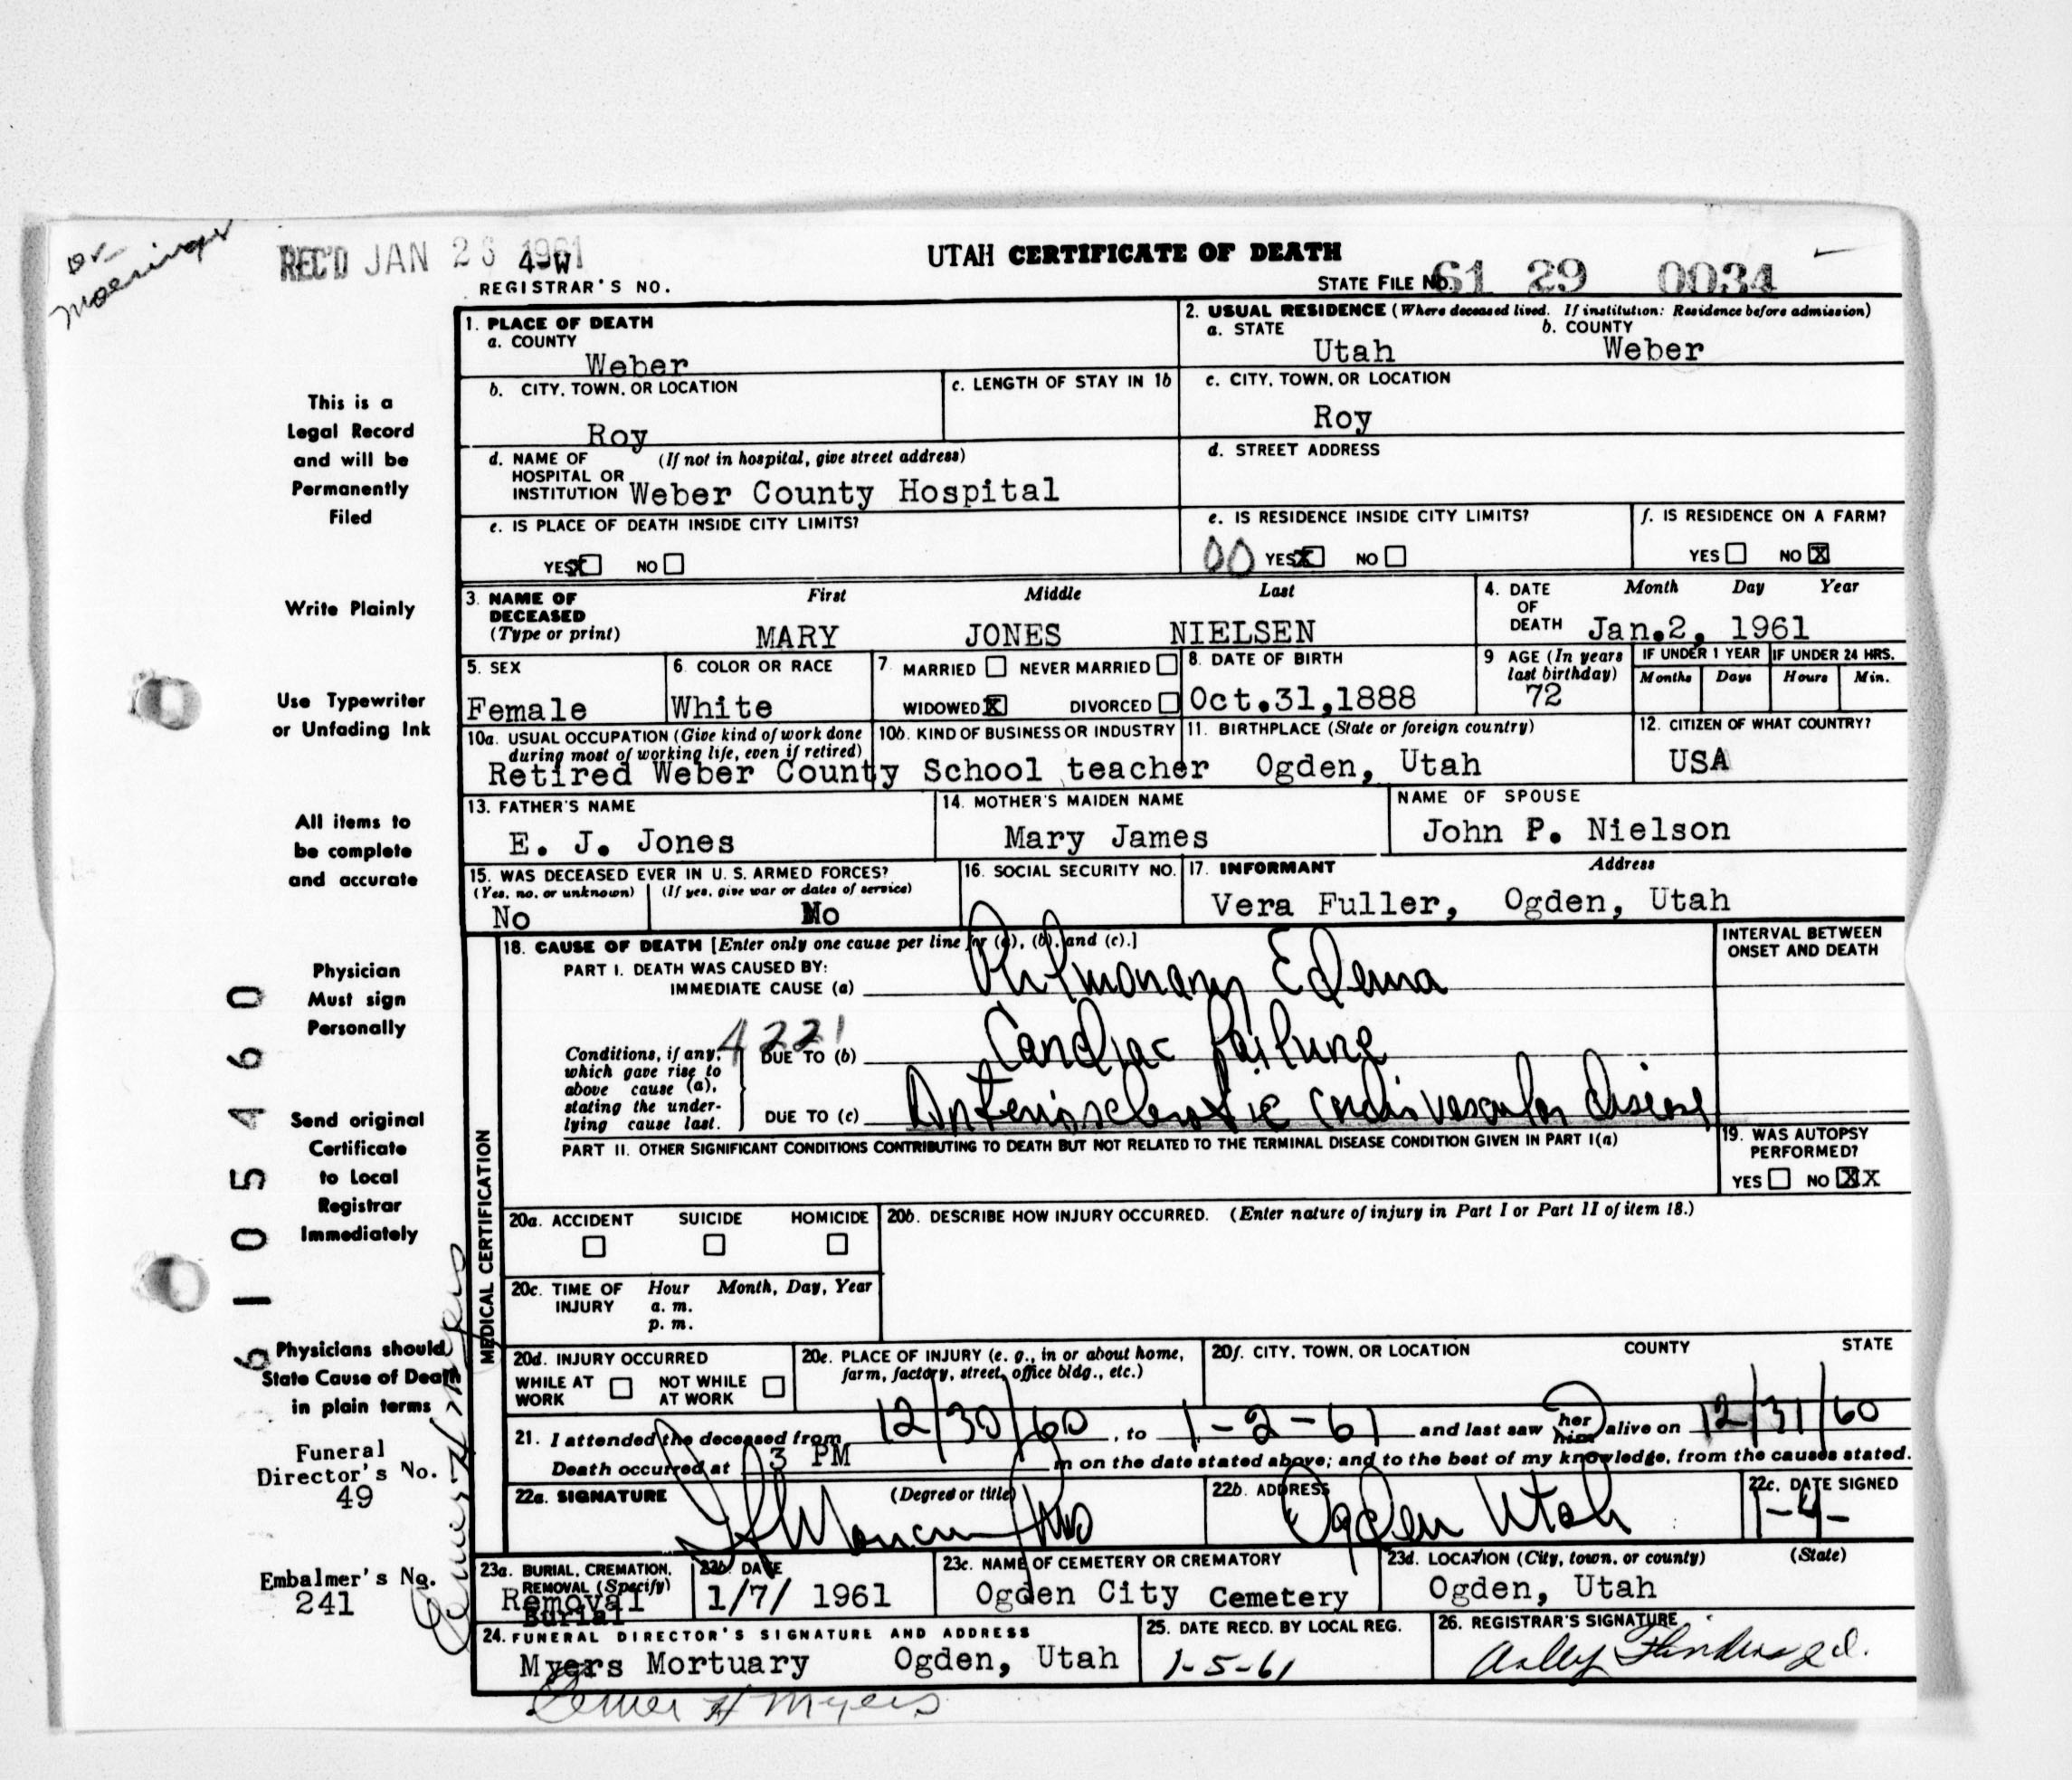 Dr Moeninger
REC'D JAN 23 1961
49W
REGISTRAR'S NO.
UTAH CERTIFICATE OF DEATH
STATE FILE No. 61 29 0034
This is a
Legal Record
and will be
Permanently
Filed
Write Plainly
Use Typewriter
or Unfading Ink
All items to
be complete
and accurate
Physician
Must sign
Personally
Send original
Certificate
to Local
Registrar
Immediately
Physicians should
State Cause of Death
in plain terms
Funeral
Director's No.
49
Embalmer's No.
241
6105460
1. PLACE OF DEATH
a. COUNTY
Weber
b. CITY, TOWN, OR LOCATION
Roy
c. LENGTH OF STAY IN 1b
d. NAME OF (If not in hospital, give street address)
HOSPITAL OR
INSTITUTION Weber County Hospital
e. IS PLACE OF DEATH INSIDE CITY LIMITS?
YES X NO
2. USUAL RESIDENCE (Where deceased lived. If institution: Residence before admission)
a. STATE b. COUNTY
Utah Weber
c. CITY, TOWN, OR LOCATION
Roy
d. STREET ADDRESS
e. IS RESIDENCE INSIDE CITY LIMITS?
00 YES X NO
f. IS RESIDENCE ON A FARM?
YES NO X
3. NAME OF DECEASED (Type or print)
First Middle Last
MARY JONES NIELSEN
4. DATE OF DEATH Month Day Year
Jan.2, 1961
5. SEX
Female
6. COLOR OR RACE
White
7. MARRIED NEVER MARRIED
WIDOWED X DIVORCED
8. DATE OF BIRTH
Oct.31,1888
9 AGE (In years last birthday)
72
IF UNDER 1 YEAR IF UNDER 24 HRS.
Months Days Hours Min.
10a. USUAL OCCUPATION (Give kind of work done during most of working life, even if retired)
10b. KIND OF BUSINESS OR INDUSTRY
Retired Weber County School teacher
11. BIRTHPLACE (State or foreign country)
Ogden, Utah
12. CITIZEN OF WHAT COUNTRY?
USA
13. FATHER'S NAME
E. J. Jones
14. MOTHER'S MAIDEN NAME
Mary James
NAME OF SPOUSE
John P. Nielson
15. WAS DECEASED EVER IN U. S. ARMED FORCES?
(Yes, no, or unknown) (If yes, give war or dates of service)
No No
16. SOCIAL SECURITY NO.
17. INFORMANT Address
Vera Fuller, Ogden, Utah
MEDICAL CERTIFICATION
18. CAUSE OF DEATH [Enter only one cause per line for (a), (b), and (c).]
PART I. DEATH WAS CAUSED BY:
IMMEDIATE CAUSE (a) Pulmonary Edema
4221
Conditions, if any,
which gave rise to
above cause (a),
stating the under-
lying cause last.
DUE TO (b) Cardiac failure
DUE TO (c) Arteriosclerotic cardiovascular disease
INTERVAL BETWEEN
ONSET AND DEATH
PART II. OTHER SIGNIFICANT CONDITIONS CONTRIBUTING TO DEATH BUT NOT RELATED TO THE TERMINAL DISEASE CONDITION GIVEN IN PART I(a)
19. WAS AUTOPSY
PERFORMED?
YES NO XX
20a. ACCIDENT SUICIDE HOMICIDE
20b. DESCRIBE HOW INJURY OCCURRED. (Enter nature of injury in Part I or Part II of item 18.)
20c. TIME OF INJURY Hour Month, Day, Year
a. m.
p. m.
20d. INJURY OCCURRED
WHILE AT WORK NOT WHILE AT WORK
20e. PLACE OF INJURY (e. g., in or about home,
farm, factory, street, office bldg., etc.)
20f. CITY, TOWN, OR LOCATION COUNTY STATE
21. I attended the deceased from 12/30/60, to 1-2-61 and last saw her him alive on 12/31/60
Death occurred at 3 PM m on the date stated above; and to the best of my knowledge, from the causes stated.
22a. SIGNATURE (Degree or title)
MD
22b. ADDRESS
Ogden Utah
22c. DATE SIGNED
1-4-
23a. BURIAL, CREMATION,
REMOVAL (Specify)
Removal
Burial
23b. DATE
1/7/ 1961
23c. NAME OF CEMETERY OR CREMATORY
Ogden City Cemetery
23d. LOCATION (City, town, or county) (State)
Ogden, Utah
24. FUNERAL DIRECTOR'S SIGNATURE AND ADDRESS
Myers Mortuary Ogden, Utah
25. DATE RECD. BY LOCAL REG.
1-5-61
26. REGISTRAR'S SIGNATURE
H Myers